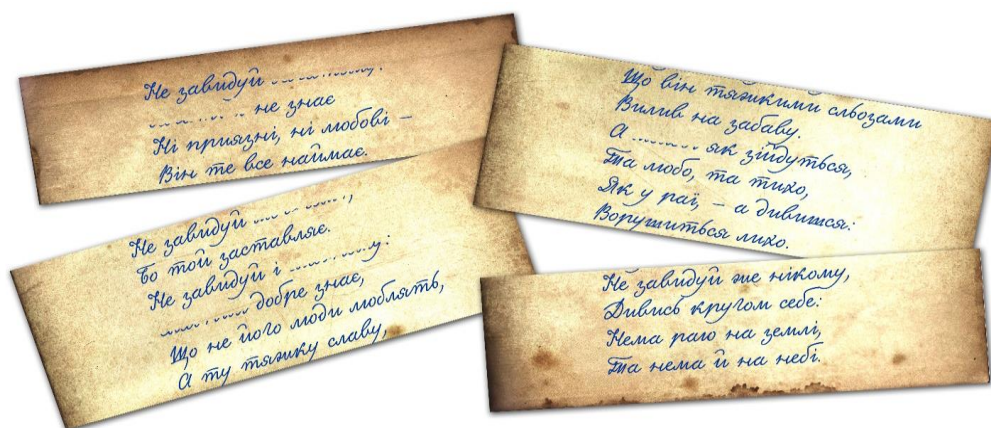 Не завидуй
не знає
Ні приязні, ні любові –
Він те все наймає.
Не завидуй
Бо той заставляє.
Не завидуй і
добре знає,
Що не його люди люблять,
А ту тяжку славу,
Що він тяжкими сльозами
Вилив на забаву.
А як зійдуться,
Та любо, та тихо,
Як у раї, – а дивишся:
Ворушиться лихо.
Не завидуй же нікому,
Дивись кругом себе:
Нема раю на землі,
Та нема й на небі.